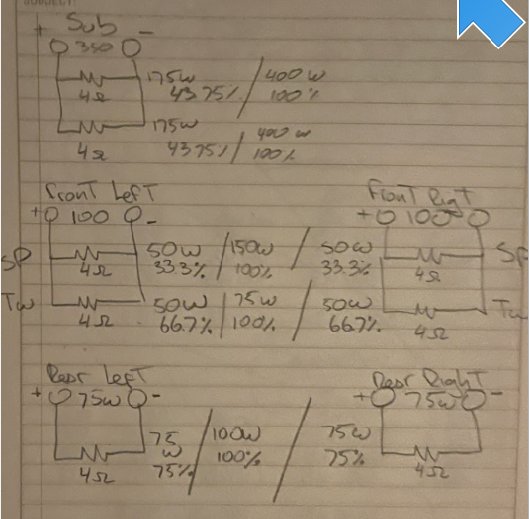 SUBJECT:
Sub
+ 350 -
175W / 400W
4Ω 43.75% / 100%
175W / 400 W
4Ω 43.75% / 100%
Front Left Front Right
+ 100 - + 100 -
SP 50W / 150W / 50W SP
4Ω 33.3% / 100% 33.3% 4Ω
Tw 50W / 75W / 50W Tw
4Ω 66.7% / 100% 66.7% 4Ω
Rear Left Rear Right
+ 75W - + 75W -
75 / 100W / 75W
W 100% 75%
4Ω 75% 4Ω